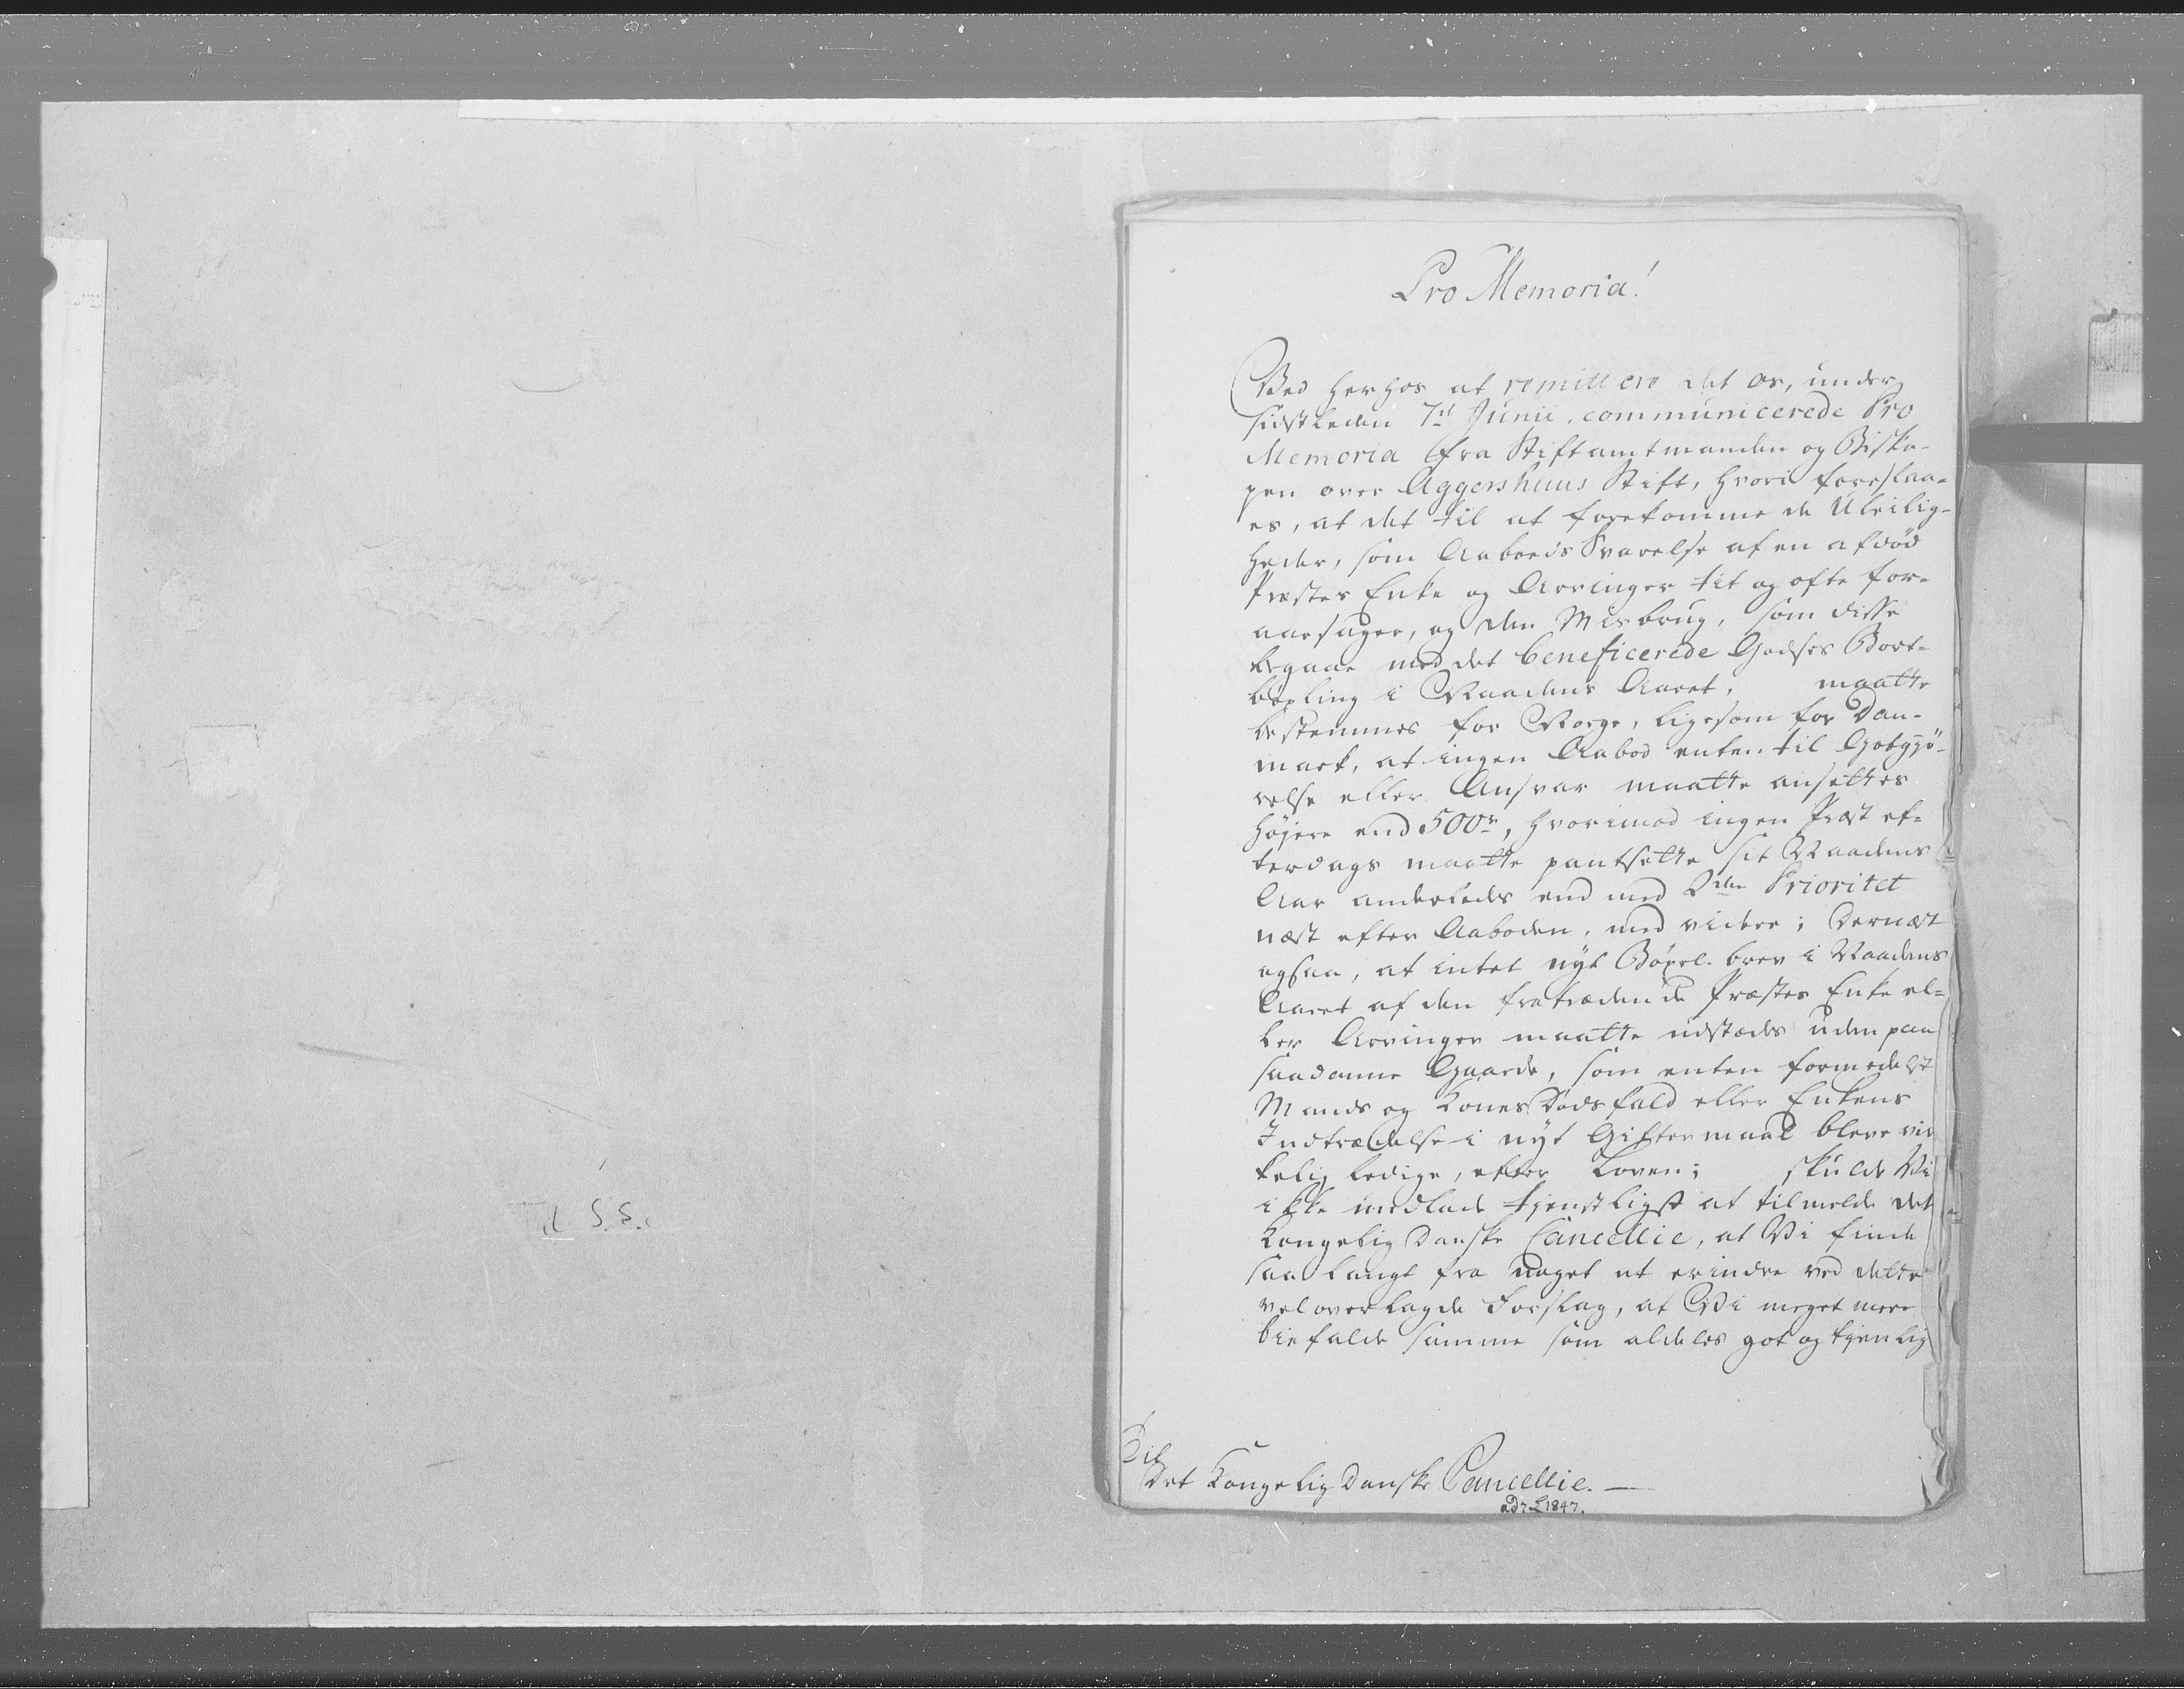 Pro Memoria!
Ved herhos at remittere det os, under
sidstleden 7d Junii, communicerede Pro
Memoria fra Stiftamtmanden og Bisko-
pen over Aggershuus Stift, hvori foreslaa-
es, at det til at forekomme de Uleilig-
heder, som Aaboeds Svarelse af en afdød
Præstes Enke og Arvinger tit og ofte for-
aarsager, og den Misbrug, som disse
begaae med det beneficerede Godses Bort-
bøxling i Naadens Aaret, maatte
bestemmes for Norge, ligesom for Dan-
mark, at ingen Aabod enten til Godgjø-
relse eller Ansvar maatte ansættes
højere end 500r, hvorimod ingen Præst ef-
terdags maatte pantsætte sit Naadens
Aar anderledes end med 2den Prioritet
næst efter Aaboden, med videre; dernæst
ogsaa, at intet nyt Bøxel-brev i Naadens
Aaret af den fratrædende Præstes Enke el-
ler Arvinger maatte udstædes uden paa
saadanne Gaarde, som enten formedelst
Mands og Kones Dødsfald eller Enkens
Indtrædelse i nyt Giftermaal bleve vir
kelig ledige, efter Loven; skulde Vi
ikke undlade tjenstligst at tilmelde det
Kongelig Danske Cancellie, at Vi finde
saa langt fra noget at erindre ved dette
veloverlagde Forslag, at Vi meget mere
biefalde samme som aldeles got og tjenlig
Til
Det Kongelig Danske Cancellie.
ad 7 L 1847.
Til S. S.